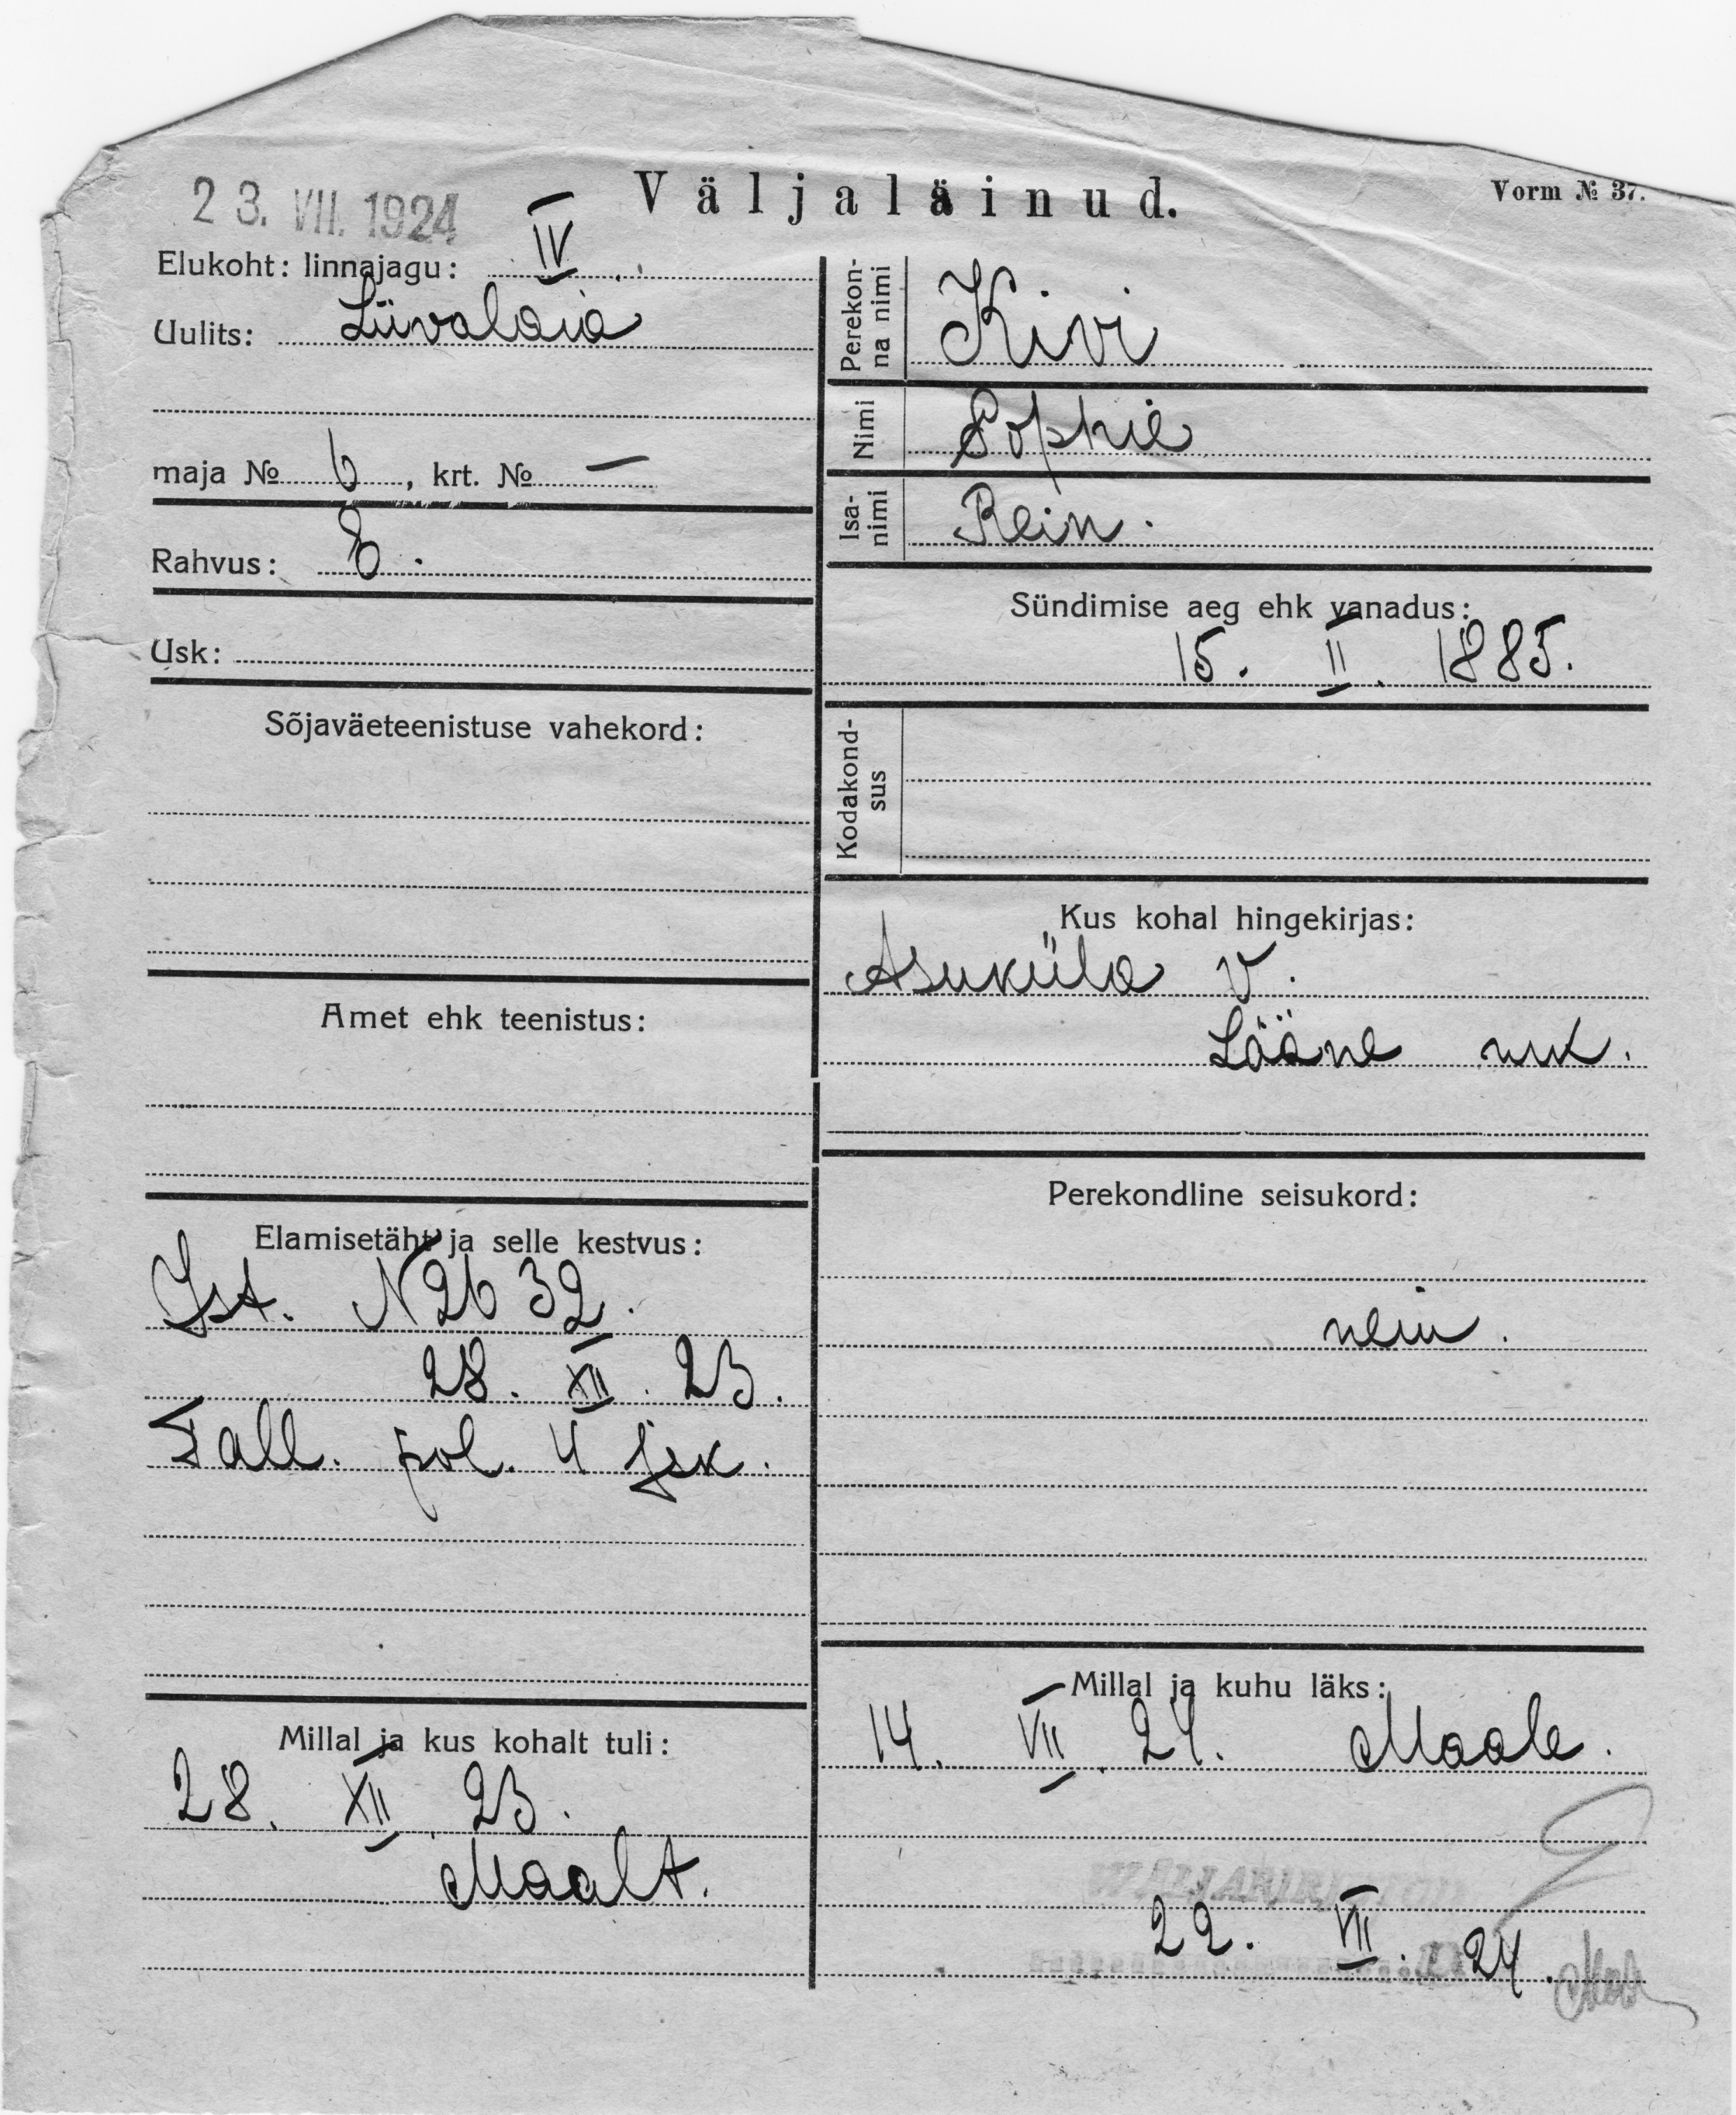 23. VII. 1924
Väljaläinud.
Vorm № 37.
Elukoht: linnajagu: IV
Uulits: Liivalaia
maja № 6, krt. № —
Rahvus: E.
Usk:
Sõjaväeteenistuse vahekord:
Amet ehk teenistus:
Elamisetäht ja selle kestvus:
Ist. N 2632.
28. XII. 23.
Tall. pol. 4 jsk.
Millal ja kus kohalt tuli:
28. XII. 23.
Maalt.
Perekonna nimi
Kivi
Nimi
Sophie
Isanimi
Rein.
Sündimise aeg ehk vanadus:
15. II. 1885.
Kodakondsus
Kus kohal hingekirjas:
Asuküla v.
Lääne mk.
Perekondline seisukord:
nein.
Millal ja kuhu läks:
14. VII. 24. Maale.
22. VII. 24.